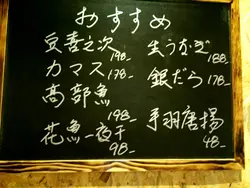 おすすめ
豆壱之次 198-
カマス 178-
高部魚 198-
花魚一夜干 98-
生うなぎ 188-
銀だら 178-
手羽唐揚 48-